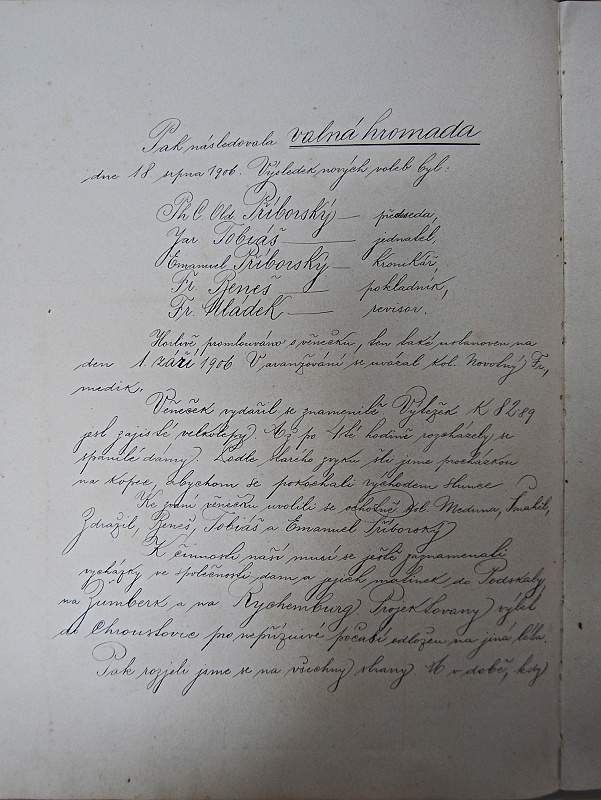 Pak následovala valná hromada
dne 18 srpna 1906. Výsledek nových voleb byl:
Ph C. Old. Příborský — předseda,
Jar Tobiáš — jednatel,
Emanuel Příborský — kronikář,
Fr. Beneš — pokladník,
Fr. Mládek — revisor.
Horlivě promlouváno o věnečku, ten také ustanoven na
den 1. září 1906 V aranžování se uvázal kol. Novotný Fr,
medik.
Věneček vydařil se znamenitě Výtěžek K 82·89
jest zajisté velkolepý. Až po 4té hodině rozcházely se
spanilé dámy. Podle starého zvyku šli jsme procházkou
na kopec, abychom se pokochali východem slunce.
Ke zvaní věnečku uvolili se ochotně kol. Meduna, Smahel,
Zdražil, Beneš, Tobiáš a Emanuel Příborský
K činnosti naší musí se ještě zaznamenati
vycházky ve společnosti dam a jejich matinek do Podskaly
na Žumberk a na Rychemburg. Projektovaný výlet
do Chroustovic pro nepříznivé počasí odložen na jiná léta.
Pak rozjeli jsme se na všechny strany. A v době, kdy